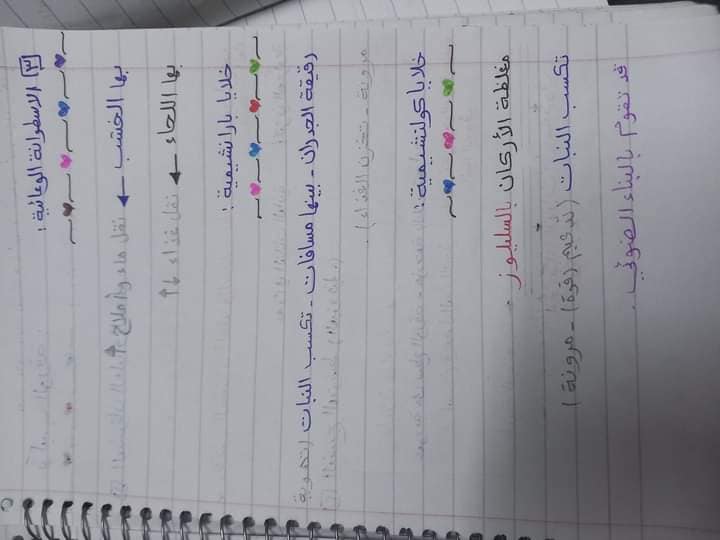 [٣] الاسطوانة الوعائية :
بها الخشب ← نقل ماء وأملاح ↑
بها اللحاء ← نقل غذاء ↑↓
خلايا بارانشيمية :
رقيقة الجدران - بينها مسافات - تكسب النبات (تهوية
مرونة - تخزن الغذاء) .
خلايا كولنشيمية :
مغلظة الأركان بالسليلوز .
تكسب النبات (تدعيم (قوة) - مرونة)
قد تقوم بالبناء الضوئي .